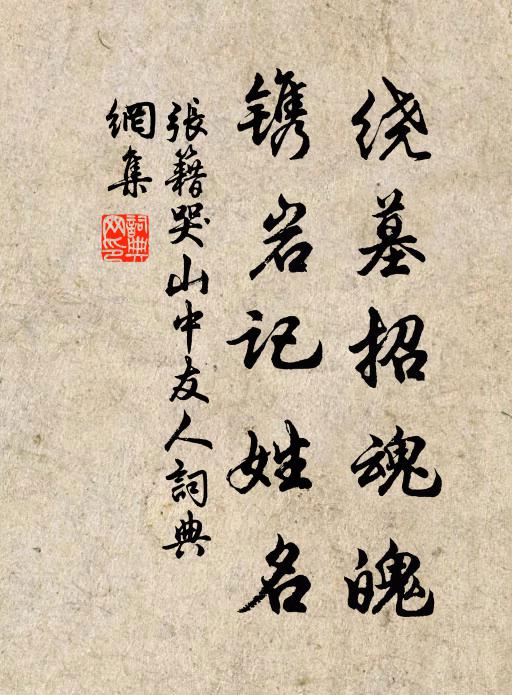 绕墓招魂魄
镌岩记姓名
張籍哭山中友人詞典
網集
詞典網印